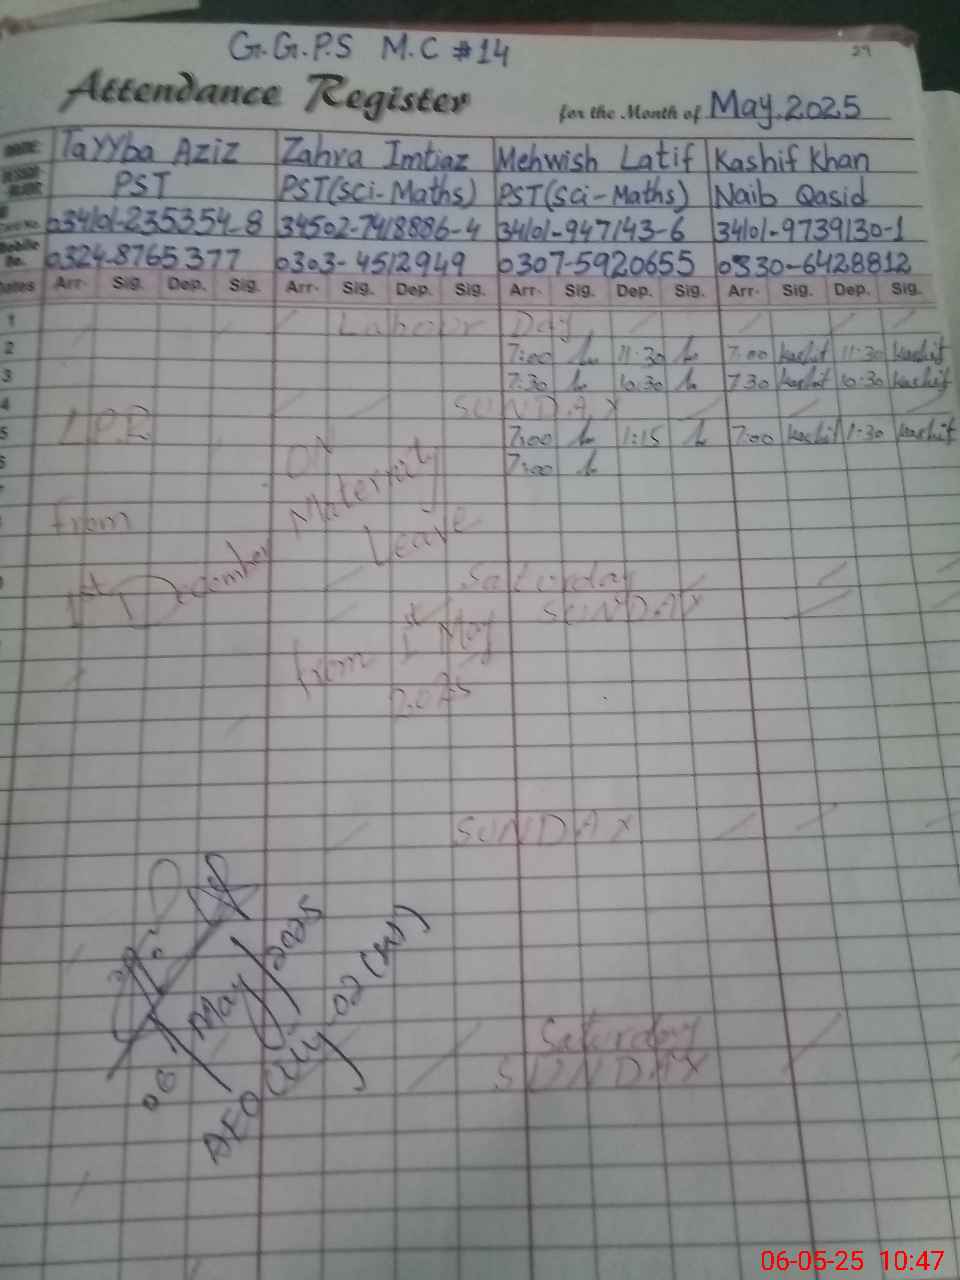 G.G.P.S M.C #14
29
Attendance Register for the Month of May.2025
Tayyba Aziz Zahra Imtiaz Mehwish Latif Kashif Khan
PST PST(Sci-Maths) PST(Sci-Maths) Naib Qasid
34502-7418886-4 34101-947143-6 34101-9739130-1
0324-8765377 0303-4512949 0307-5920655 0330-6428812
Dates Arr. Sig. Dep. Sig. Arr. Sig. Dep. Sig. Arr. Sig. Dep. Sig. Arr. Sig. Dep. Sig.
1 Labour Day
2 7:00 11:30 7:00 Kashif 11:30 Kashif
3 7:30 10:30 7:30 Kashif 10:30 Kashif
4 SUNDAY
5 L.P.R 7:00 1:15 7:00 Kashif 1:30 Kashif
6 ON 7:00
Maternity
from Leave
1st December
Saturday
SUNDAY
from 1st May
2025
SUNDAY
06 May 2025
AEO
Saturday
SUNDAY
06-05-25 10:47